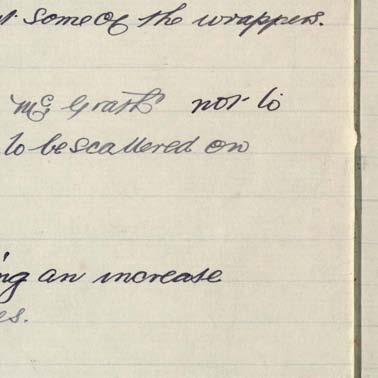 some of the wrappers.
McGrath not to
to be scattered on
ng an increase
es.